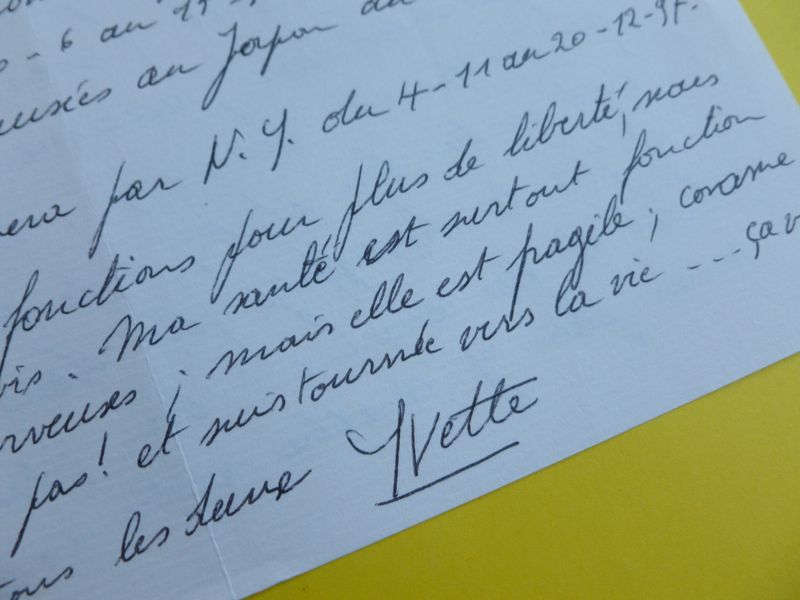 6 au 19-
au Japon au
par N.Y. du 4-11 au 20-12-97.
fonctions pour plus de liberté, nous
Ma santé est surtout fonction
mais elle est fragile, comme
pas! et suis tournée vers la vie --- ça v
les deux Yvette